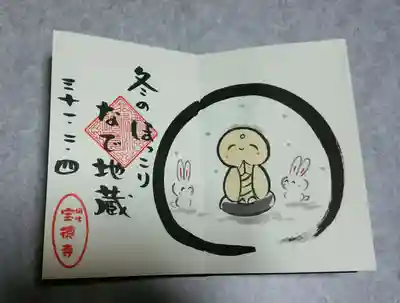 冬の
ほっこり
なで地蔵
三十一・二・四
宝徳寺